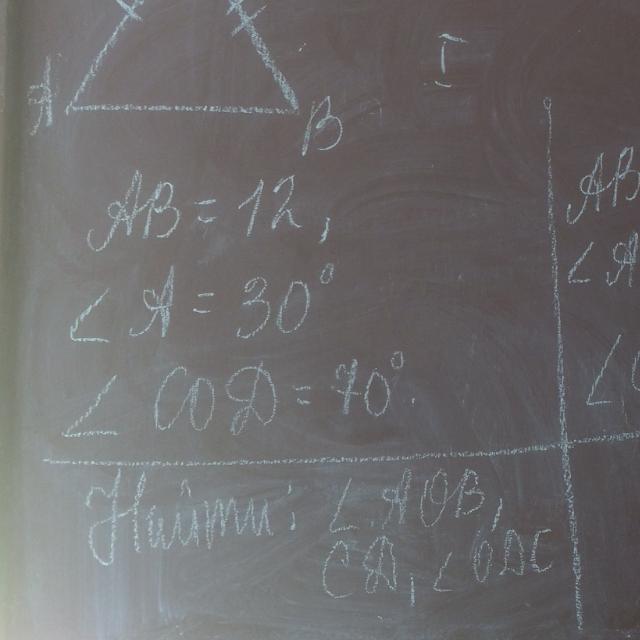 A
B
I
AB = 12,
∠ A = 30°
∠ COD = 70°.
Найти: ∠ AOB,
CD, ∠ ODC
AB
∠ A
∠